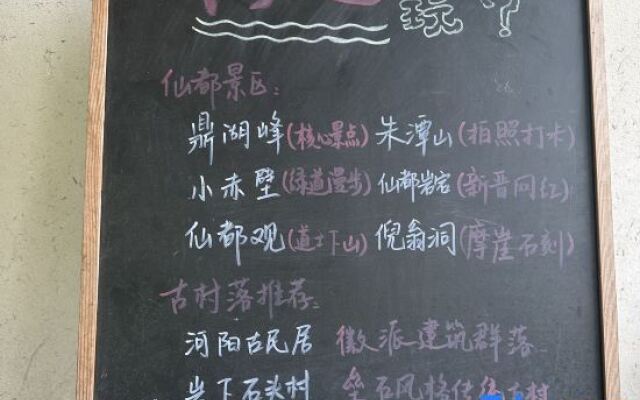 玩
仙都景区：
鼎湖峰(核心景点) 朱潭山(拍照打卡)
小赤壁(绿道漫步) 仙都岩宕(新晋网红)
仙都观(道士下山) 倪翁洞(摩崖石刻)
古村落推荐：
河阳古民居 徽派建筑群落
岩下石头村 垒石风格传统古村